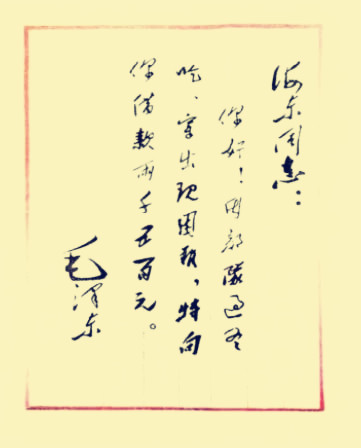 海东同志：
你好！因部隊过冬
吃、穿出现困难，特向
你借款兩千五百元。
毛泽东